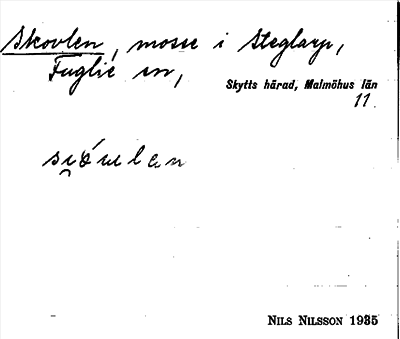 Skovlen, mosse i Steglarp,
Fuglie sn,
Skytts härad, Malmöhus län
11.
NILS NILSSON 1935